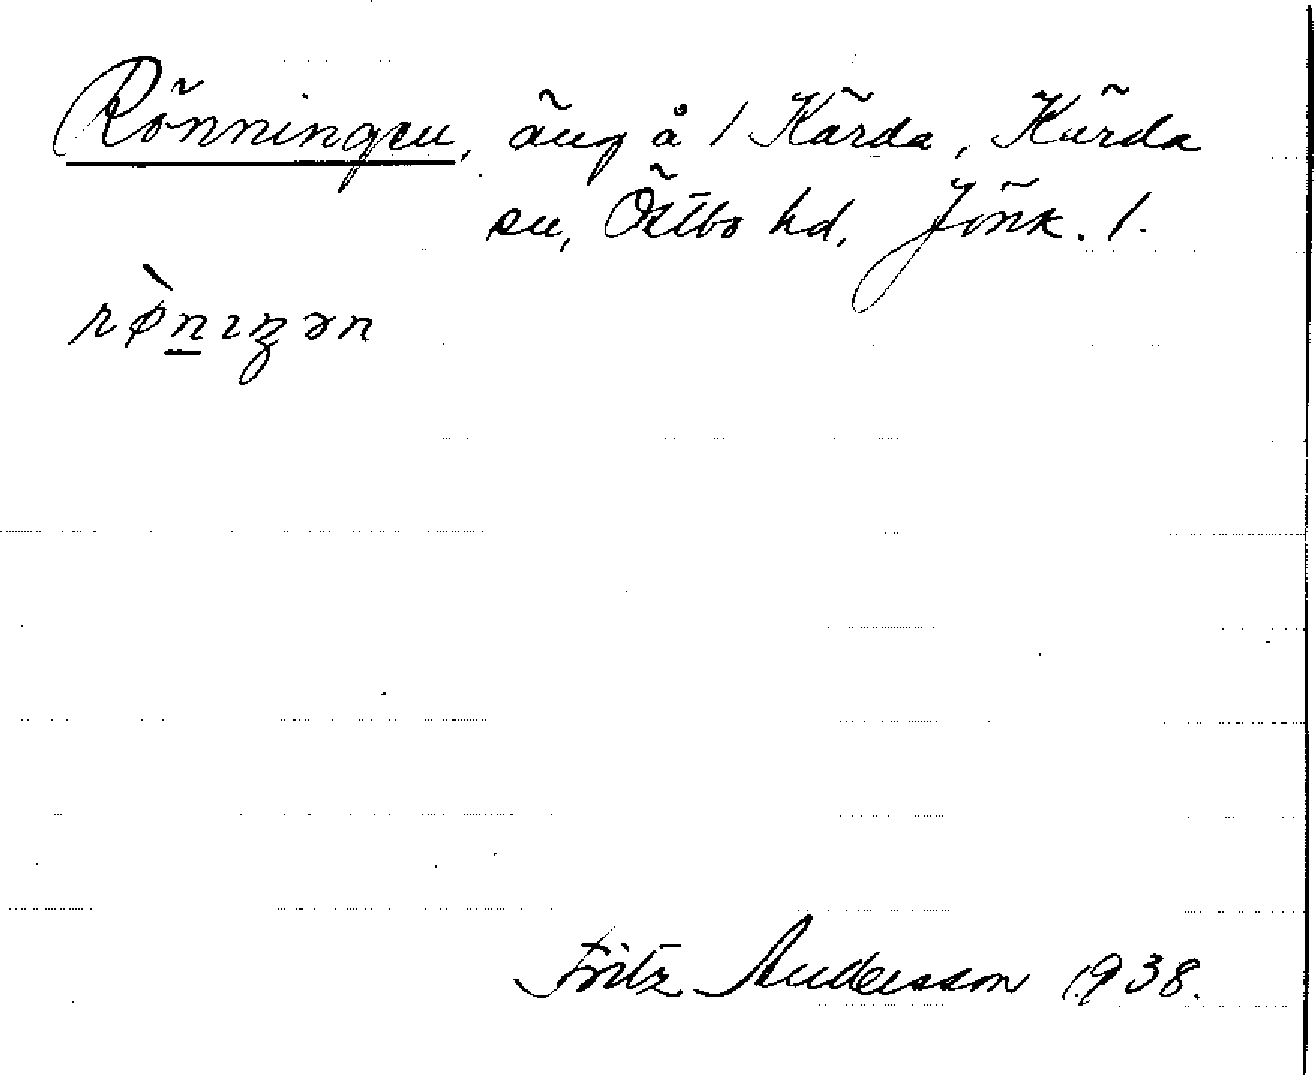 Rönningen, äng å 1 Kärda, Kärda
sn, Östbo hd, Jönk. l.
rø̀n̲ɪŋən
Fritz Andersson 1938.